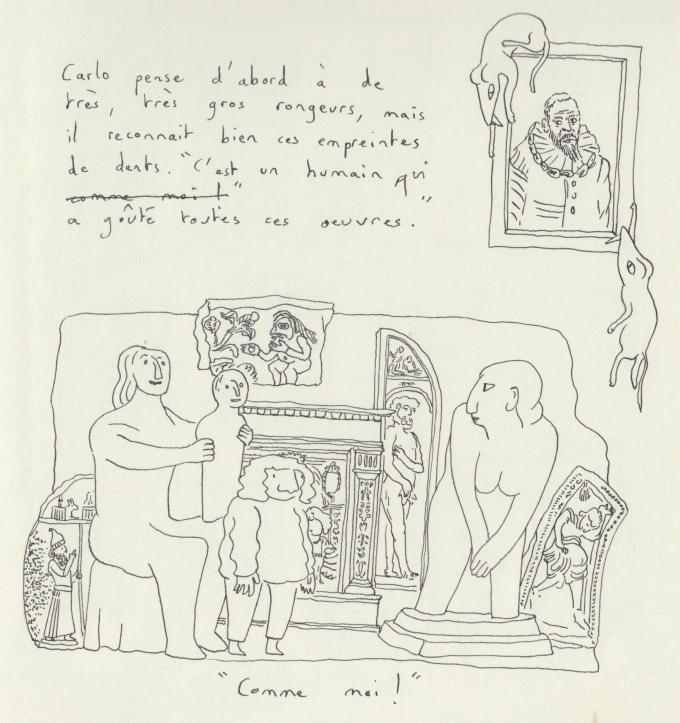 Carlo pense d'abord à de
très, très gros rongeurs, mais
il reconnait bien ces empreintes
de dents. "C'est un humain qui
comme moi !"
a goûté toutes ces oeuvres."
"Comme moi !"